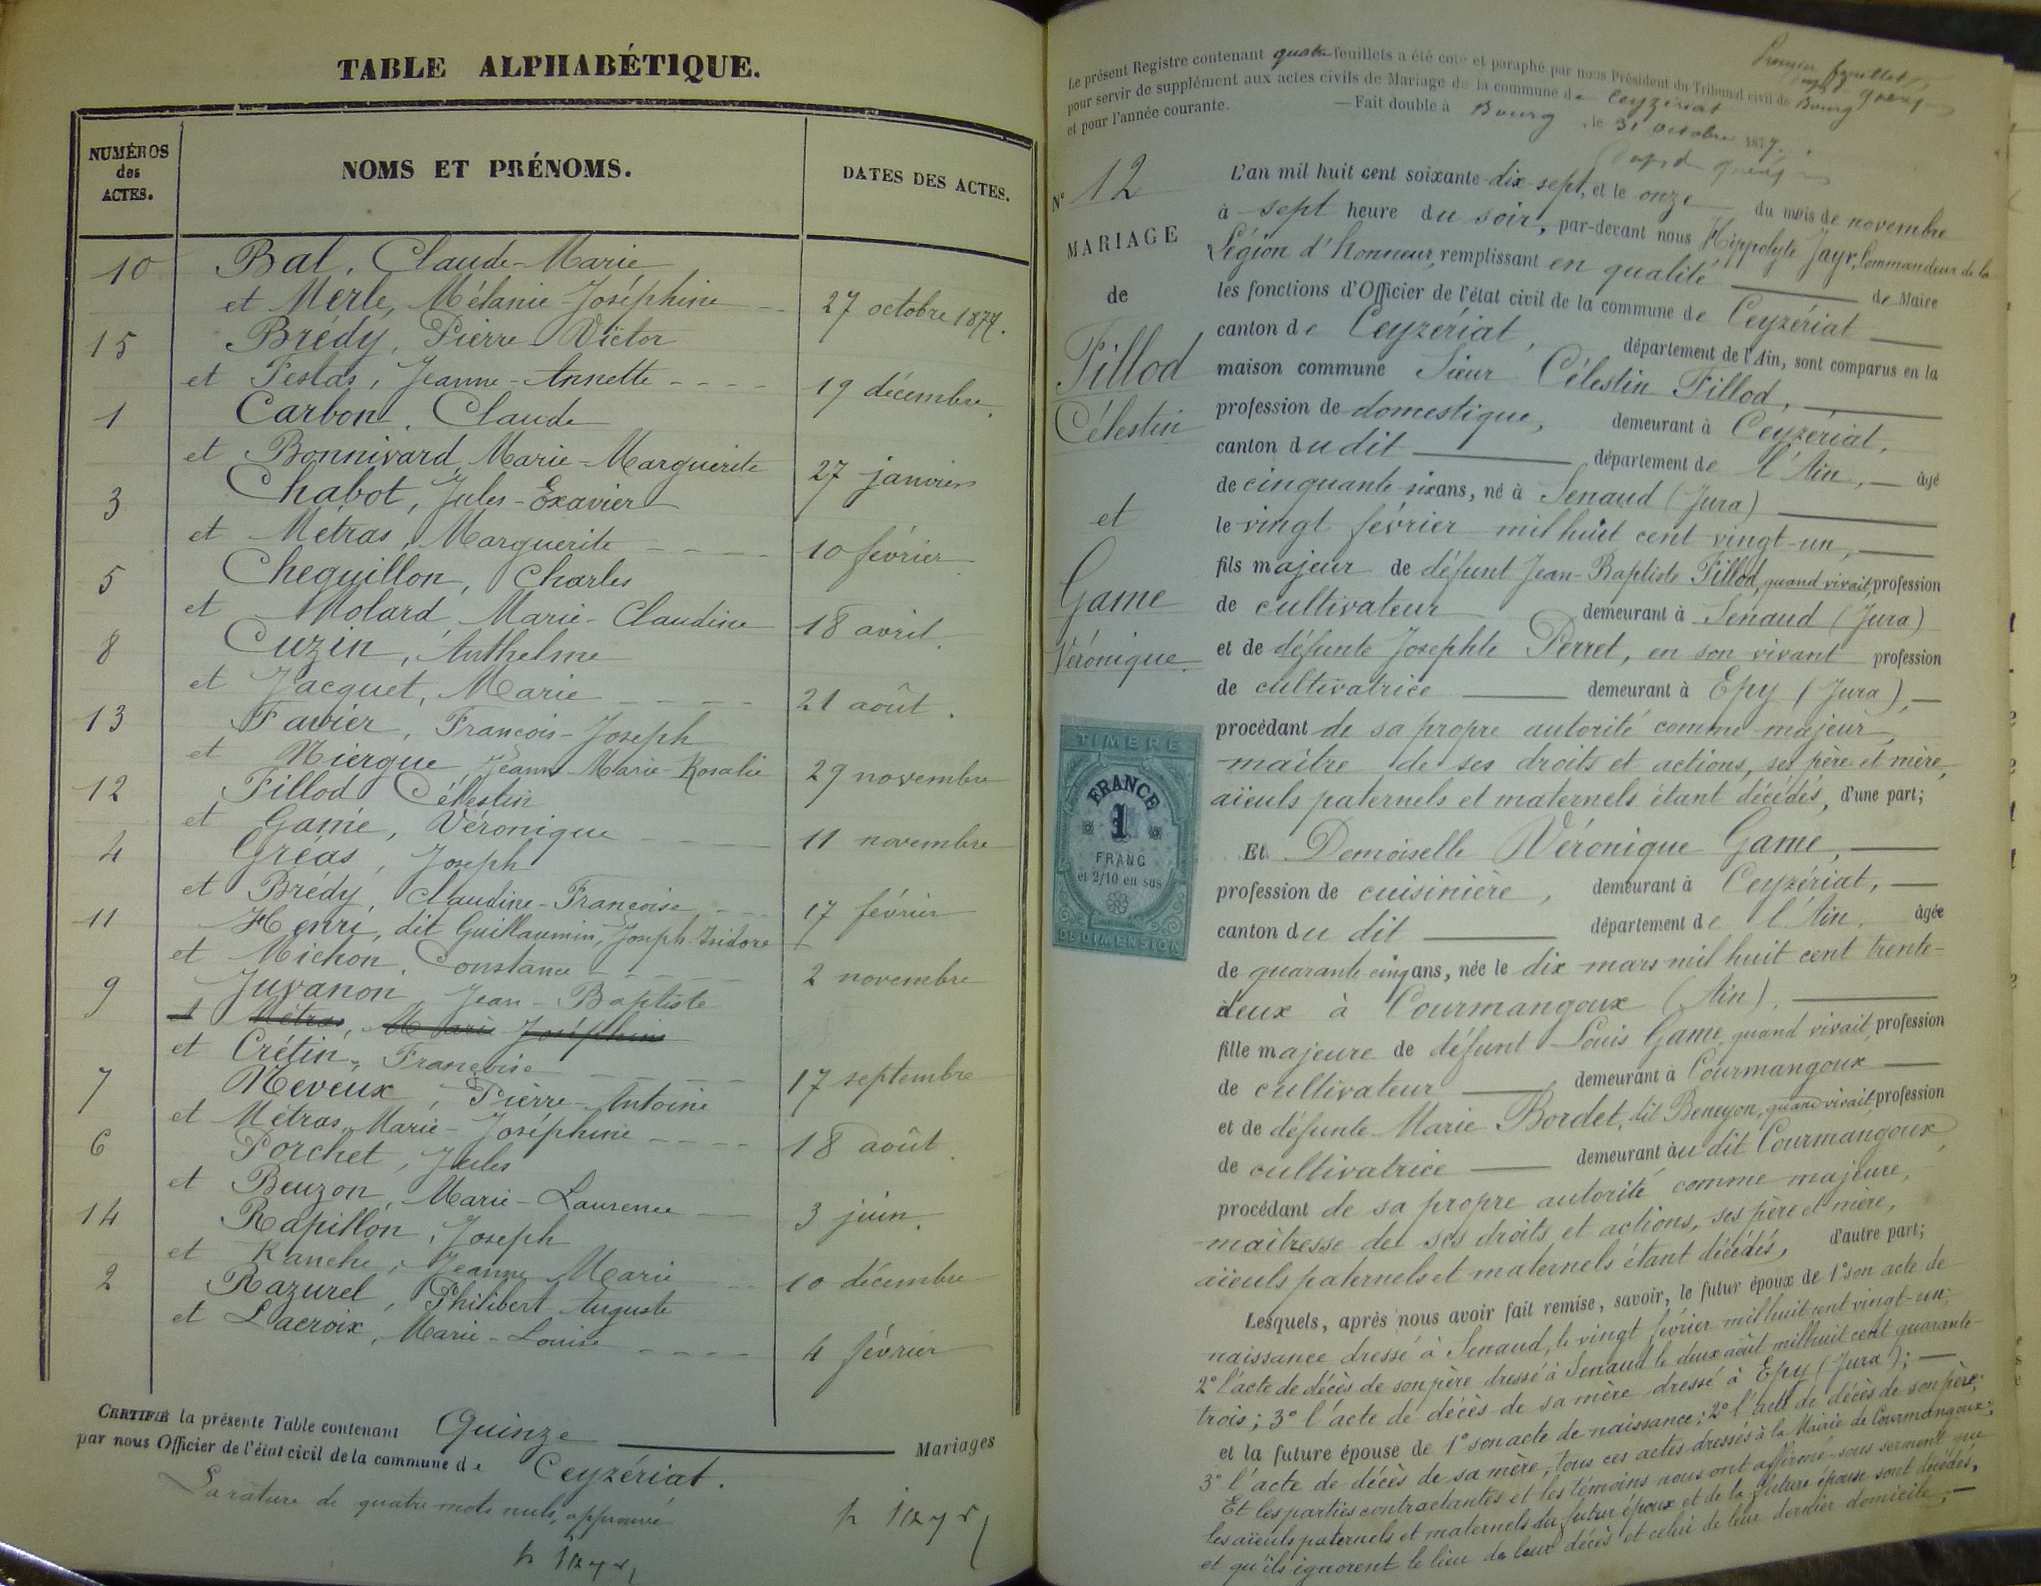 TABLE ALPHABÉTIQUE.
NUMÉROS
des
ACTES.
NOMS ET PRÉNOMS.
DATES DES ACTES.
10 Bal, Claude-Marie
et Merle, Mélanie-Joséphine 27 octobre 1877.
15 Brédy, Pierre-Victor
et Festas, Jeanne-Annette 19 décembre.
1 Carbon, Claude
et Bonnivard, Marie-Marguerite 27 janvier
3 Chabot, Jules-Exavier
et Metras, Marguerite 10 février
5 Chequillon, Charles
et Molard, Marie-Claudine 18 avril.
8 Cuzin, Anthelme
et Jacquet, Marie 21 août.
13 Favier, François-Joseph
et Niergue Jeanne-Marie-Rosalie 29 novembre
12 Fillod Célestin
et Game, Véronique 11 novembre
4 Gréas, Joseph
et Brédy, Claudine-Françoise 17 février
11 Henri, dit Guillaumin, Joseph-Isidore
et Michon, Constance 2 novembre
9 Juvanon, Jean-Baptiste
et Métras, Marie Joséphine
et Crétin, Françoise 17 septembre
7 Neveux, Pierre-Antoine
et Métras, Marie-Joséphine 18 août.
6 Porchet, Jules
et Beuzon, Marie-Laurence 3 juin.
14 Rapillon, Joseph
et Ranche, Jeanne Marie 10 décembre
2 Razurel, Philibert Auguste
et Lacroix, Marie-Louise 4 février
CERTIFIÉ la présente Table contenant Quinze Mariages
par nous Officier de l'état civil de la commune de Ceyzériat.
La rature de quatre mots nuls, approuvé
h Jayr
h Jayr
Premier feuillet
Le présent Registre contenant quatre feuillets a été coté et paraphé par nous Président du Tribunal civil de Bourg
pour servir de supplément aux actes civils de Mariage de la commune de Ceyzériat
et pour l'année courante. — Fait double à Bourg, le 31 octobre 1877.
N° 12
MARIAGE
de
Fillod
Célestin
et
Game
Véronique.
TIMBRE
FRANCE
1
FRANC
et 2/10 en sus
DE DIMENSION
L'an mil huit cent soixante-dix-sept, et le onze du mois de novembre
à sept heure du soir, par-devant nous Hippolyte Jayr, Commandeur de la
Légion d'honneur, remplissant en qualité de Maire
les fonctions d'Officier de l'état civil de la commune de Ceyzériat
canton de Ceyzériat, département de l'Ain, sont comparus en la
maison commune Sieur Célestin Fillod,
profession de domestique, demeurant à Ceyzériat,
canton dudit département de l'Ain, âgé
de cinquante-six ans, né à Senaud (Jura)
le vingt février mil huit cent vingt-un,
fils majeur de défunt Jean-Baptiste Fillod, quand vivait, profession
de cultivateur demeurant à Senaud (Jura)
et de défunte Josephte Perret, en son vivant profession
de cultivatrice demeurant à Epy (Jura),
procédant de sa propre autorité comme majeur,
maître de ses droits et actions, ses père et mère,
aïeuls paternels et maternels étant décédés, d'une part;
Et Demoiselle Véronique Game,
profession de cuisinière, demeurant à Ceyzériat,
canton du dit département de l'Ain, âgée
de quarante cinq ans, née le dix mars mil huit cent trente-
deux à Courmangoux (Ain).
fille majeure de défunt Louis Game, quand vivait, profession
de cultivateur demeurant à Courmangoux
et de défunte Marie Bordet, dit Beneyon, quand vivait, profession
de cultivatrice demeurant au dit Courmangoux,
procédant de sa propre autorité comme majeure,
maîtresse de ses droits et actions, ses père et mère,
aïeuls paternels et maternels étant décédés, d'autre part;
Lesquels, après nous avoir fait remise, savoir, le futur époux de 1° son acte de
naissance dressé à Senaud, le vingt février mil huit cent vingt-un;
2° l'acte de décès de son père dressé à Senaud le deux août mil huit cent quarante-
trois; 3° l'acte de décès de sa mère dressé à Epy (Jura);
et la future épouse de 1° son acte de naissance; 2° l'acte de décès de son père;
3° l'acte de décès de sa mère, tous ces actes dressés à la Mairie de Courmangoux;
Et les parties contractantes et les témoins nous ont affirmé sous serment que
les aïeuls paternels et maternels du futur époux et de la future épouse sont décédés,
et qu'ils ignorent le lieu de leur décès et celui de leur dernier domicile;